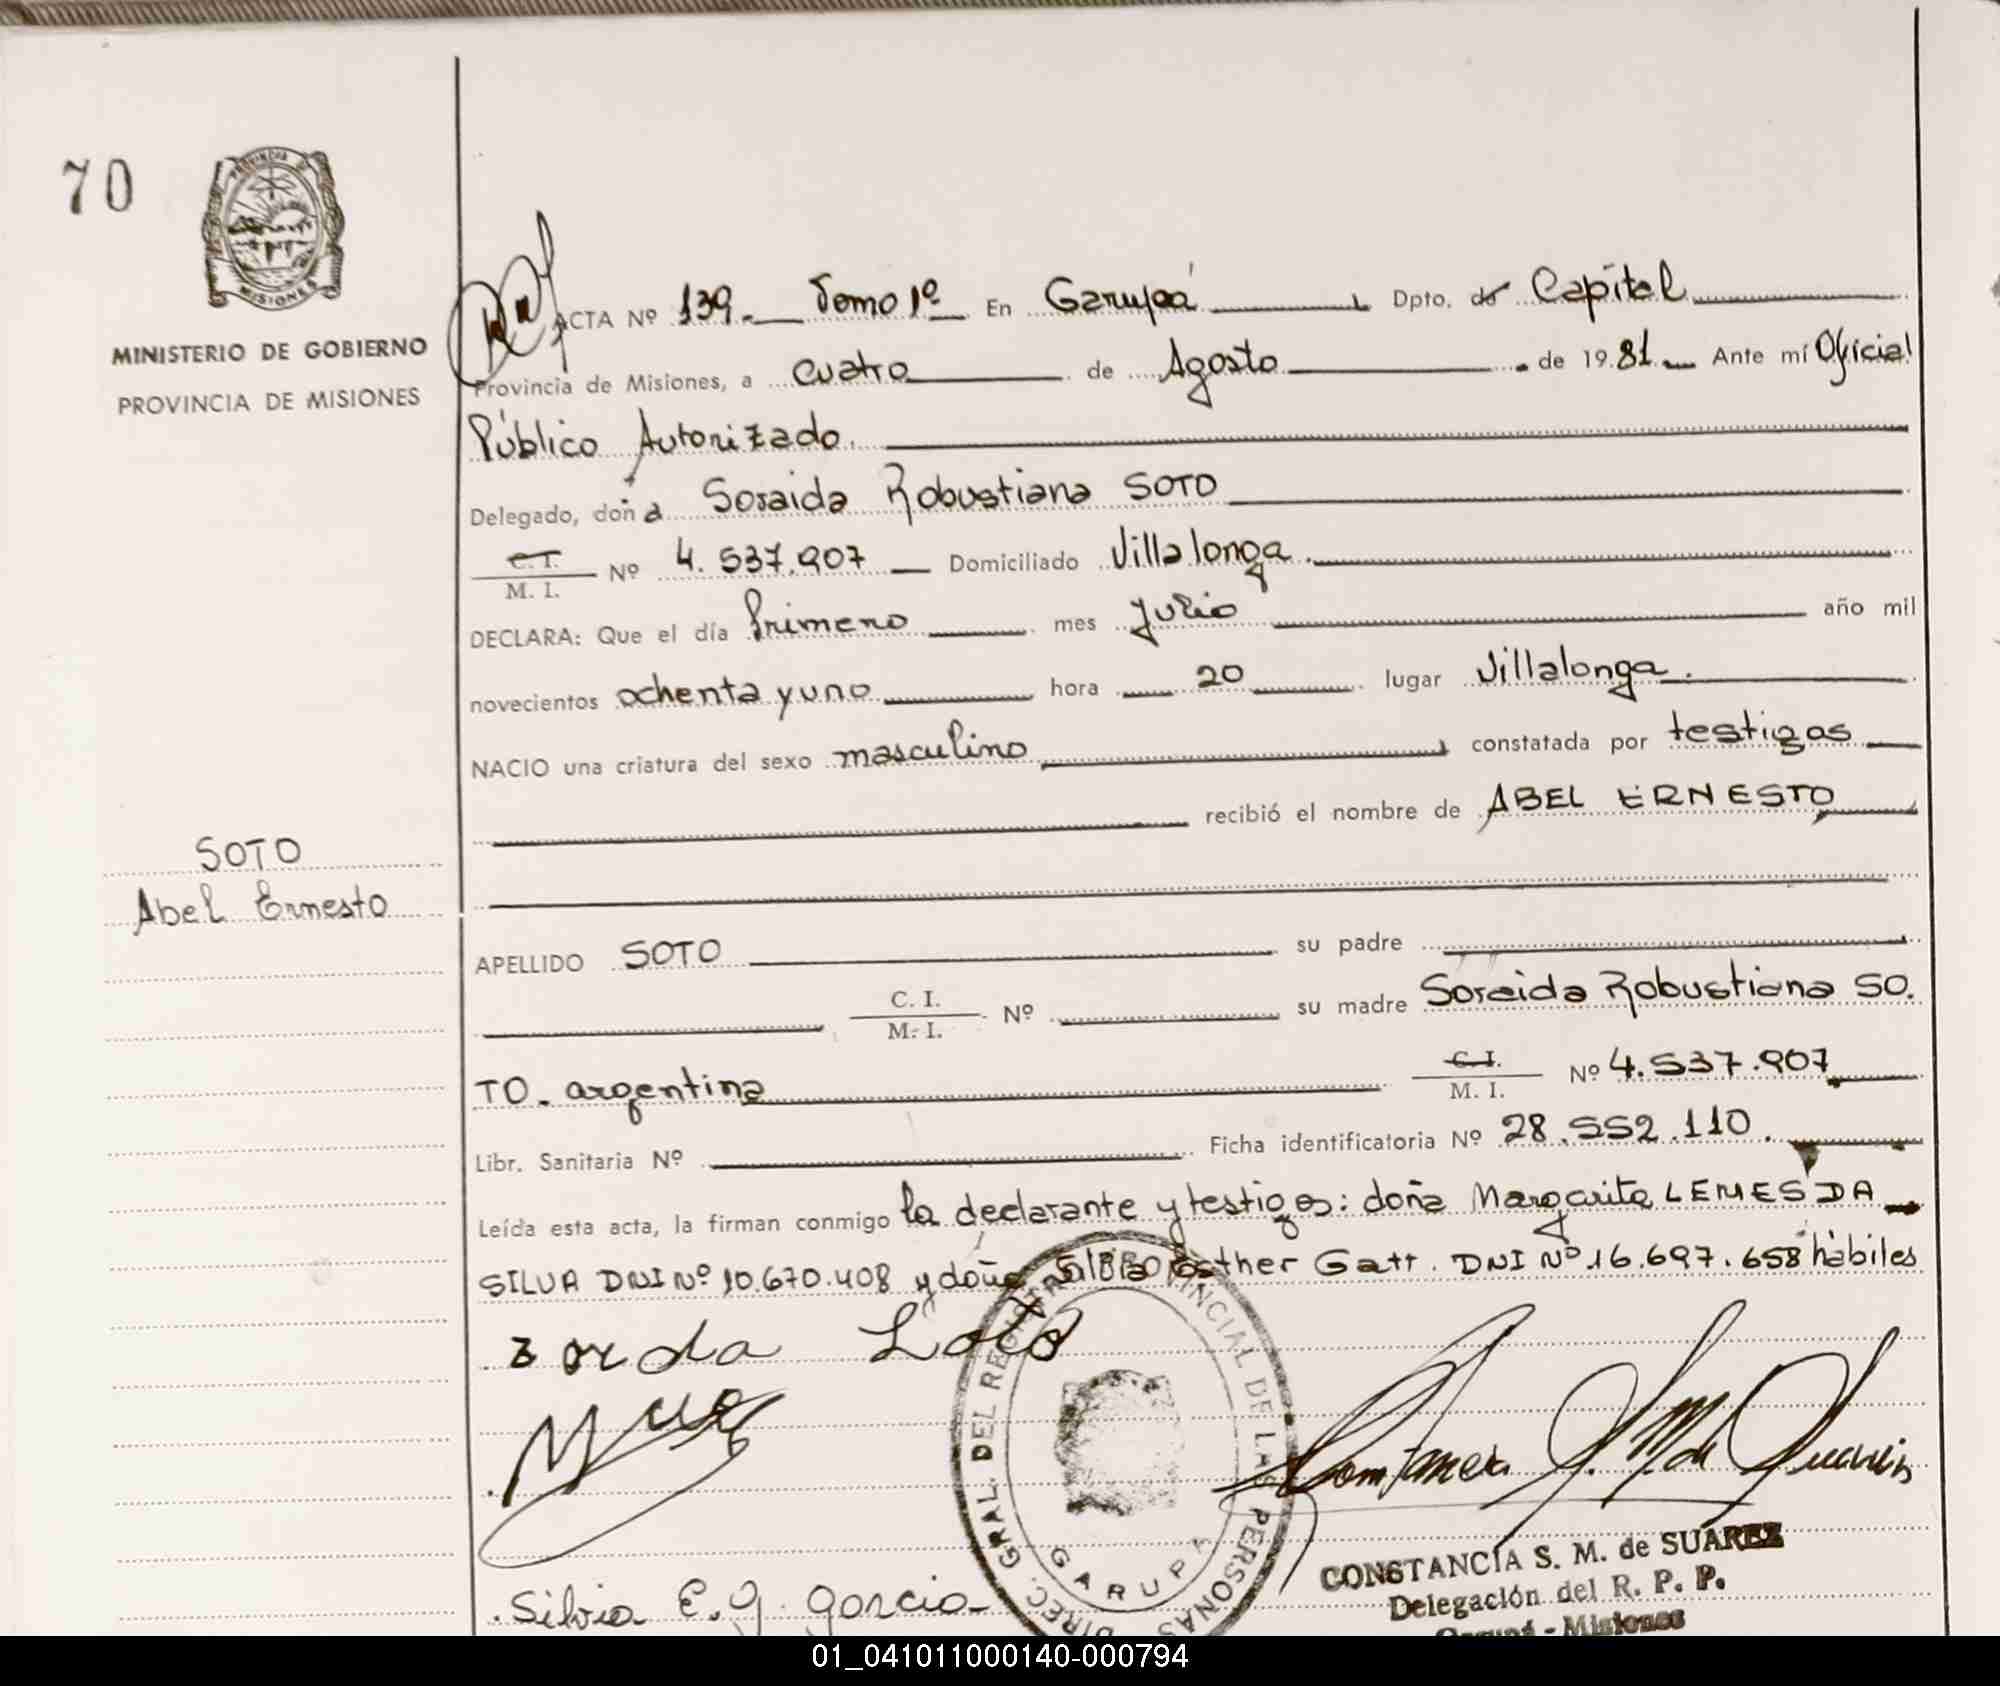 70
PROVINCIA D
MISIONES
MINISTERIO DE GOBIERNO
PROVINCIA DE MISIONES
ACTA Nº 139. Tomo 1º En Garupá Dpto. de Capital
Provincia de Misiones, a cuatro de Agosto de 1981 Ante mí Oficial
Público Autorizado.
Delegado, doña Soraida Robustiana SOTO
C. I.
M. I. Nº 4.537.907 Domiciliado Villalonga.
DECLARA: Que el día Primero mes Julio año mil
novecientos ochenta y uno hora 20 lugar Villalonga.
NACIO una criatura del sexo masculino constatada por testigos
recibió el nombre de ABEL ERNESTO
SOTO
Abel Ernesto
APELLIDO SOTO su padre
C. I.
M. I. Nº su madre Soraida Robustiana SO.
TO. argentina C. I.
M. I. Nº 4.537.907
Libr. Sanitaria Nº Ficha identificatoria Nº 28.552.110.
Leída esta acta, la firman conmigo la declarante y testigos: doña Margarita LEMES DA
SILVA DNI Nº 10.670.408 y doña Silvia Esther Gatt. DNI Nº 16.697.658 hábiles
Silvia E. G. garcia
DIREC. GRAL. DEL REGISTRO PROVINCIAL DE LAS PERSONAS
GARUPA
CONSTANCIA S. M. de SUAREZ
Delegación del R. P. P.
Garupá - Misiones
01_041011000140-000794